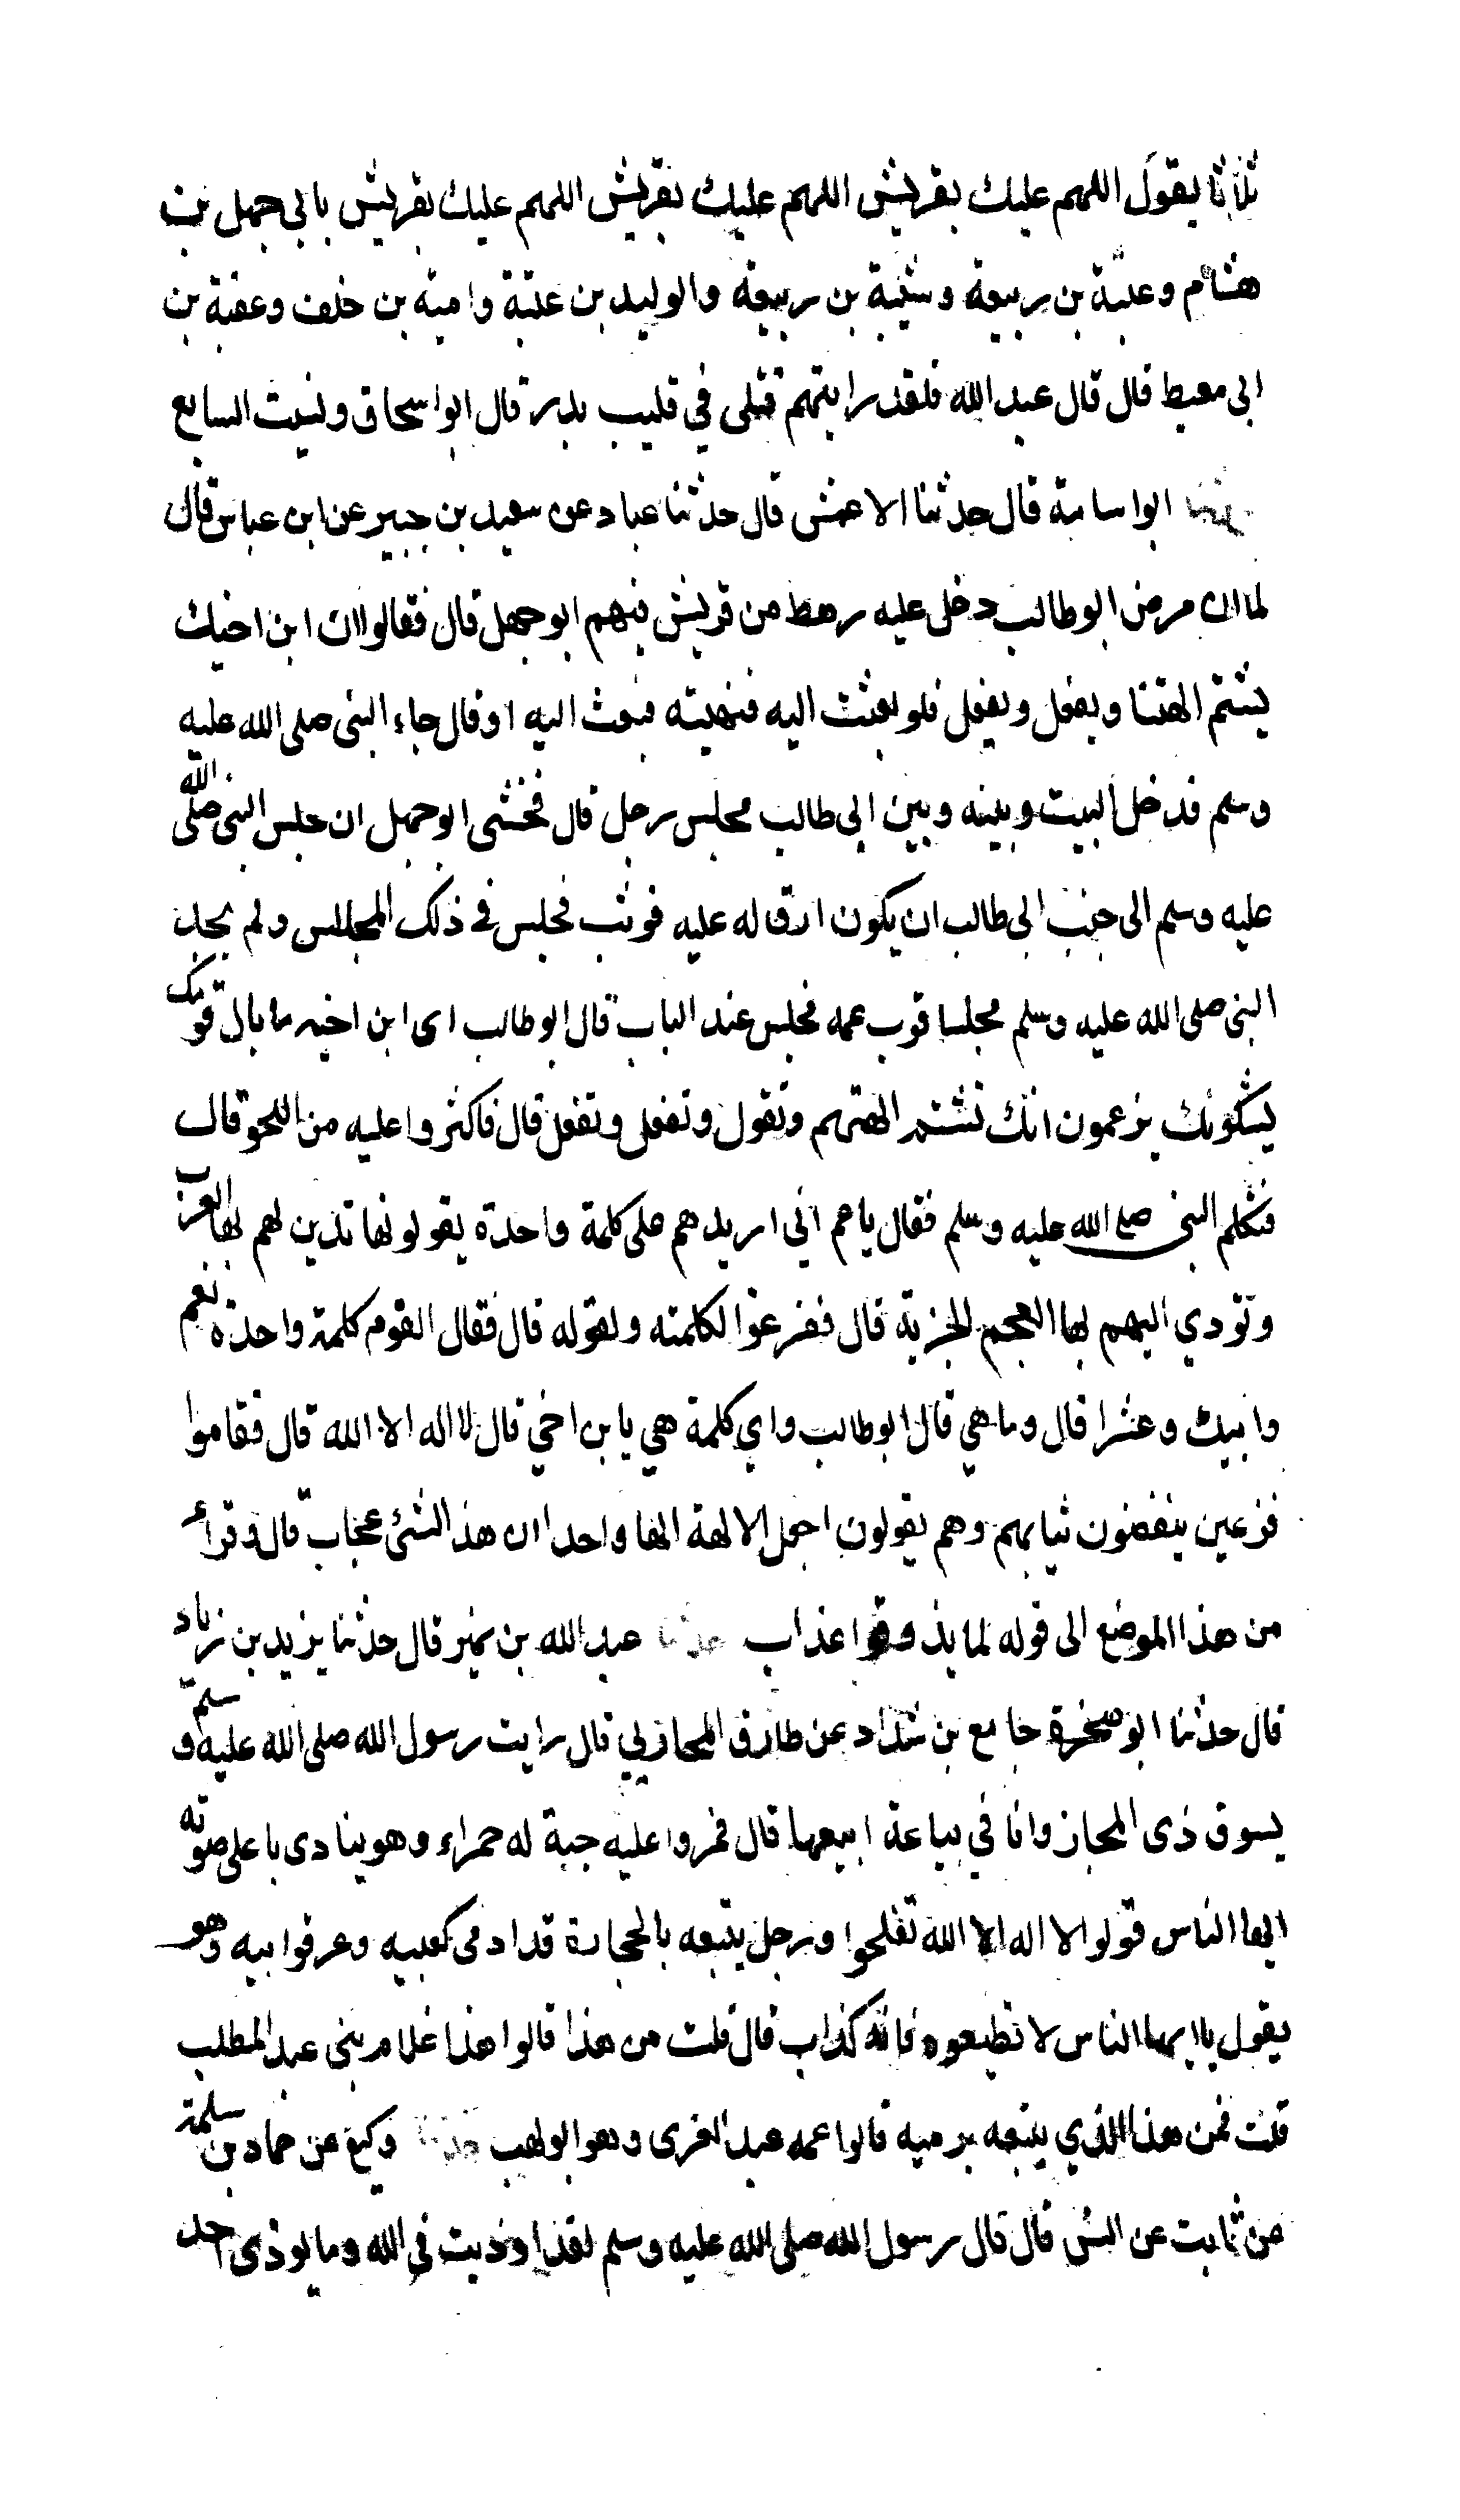 ثلاثا يقول اللهم عليك بقريش اللهم عليك بقريش اللهم عليك بقريش بابي جهل بن
هشام وعتبة بن ربيعة وشيبة بن ربيعة والوليد بن عتبة وامية بن خلف وعقبة بن
ابي معيط قال قال عبد الله فلقد رايتهم قتلى في قليب بدر قال ابو اسحاق ونسيت السابع
حدثنا ابو اسامة قال حدثنا الاعمش قال حدثنا عباد عن سعيد بن جبير عن ابن عباس قال
لما ان مرض ابو طالب دخل عليه رهط من قريش فيهم ابو جهل قال فقالوا ان ابن اخيك
يشتم الهتنا ويفعل ويفعل فلو بعثت اليه فنهيته فبعث اليه او قال جاء النبي صلى الله عليه
وسلم فدخل البيت وبينه وبين ابي طالب مجلس رجل قال فخشى ابو جهل ان جلس النبي صلى الله
عليه وسلم الى جنب ابي طالب ان يكون ارق له عليه فوثب فجلس في ذلك المجلس ولم يجد
النبي صلى الله عليه وسلم مجلسا قرب عمه فجلس عند الباب قال ابو طالب اى ابن اخي ما بال قومك
يشكونك يزعمون انك تشتم الهتهم وتقول وتفعل وتفعل قال فاكثروا عليه من اللحو قال
فتكلم النبي صلى الله عليه وسلم فقال ياعم اني اريدهم على كلمة واحدة يقولونها تدين لهم بها العرب
وتودي اليهم بها العجم الجزية قال ففزعوا لكلمته ولقوله قال فقال القوم كلمة واحدة نعم
وابيك وعشرا قال وما هي قال ابو طالب واي كلمة هي يابن اخي قال لا اله الا الله قال فقاموا
فزعين ينفضون ثيابهم وهم يقولون اجعل الالهة الها واحدا ان هذا لشئ عجاب قال وقرأ
من هذا الموضع الى قوله لما يذوقوا عذاب حدثنا عبد الله بن نمير قال حدثنا يزيد بن زياد
قال حدثنا ابو صخرة جامع بن شداد عن طارق المحاربي قال رايت رسول الله صلى الله عليه وسلم
بسوق ذى المجاز وانا في بياعة ابيعها قال فمر وعليه جبة له حمراء وهو ينادى باعلى صوته
ايها الناس قولوا لا اله الا الله تفلحوا ورجل يتبعه بالحجارة قد ادمى كعبيه وعرقوابيه وهو
يقول يا ايها الناس لا تطيعوه فانه كذاب قال قلت من هذا قالوا هذا غلام بنى عبد المطلب
قلت فمن هذا الذي يتبعه يرميه قالوا عمه عبد العزى وهو ابو لهب حدثنا وكيع عن حماد بن سلمة
عن ثابت عن انس قال قال رسول الله صلى الله عليه وسلم لقد اوذيت في الله وما يوذى احد